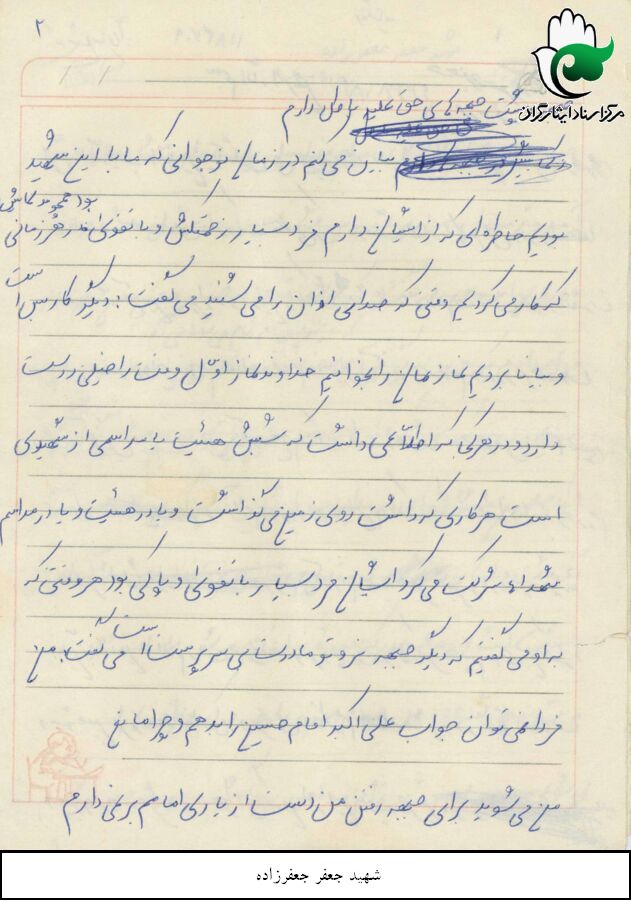 ۲
مرکز اسناد ایثارگران
جبهه‌های حق علیه باطل دارم
بیان می‌کنم در زمان نوجوانی که ما با این شهید
بود همچو نماز
بودیم خاطره‌ای که از ایشان دارم مرد بسیار زحمتکش و با تقوای در هر زمانی
که کار می‌کردیم وقتی که صدای اذان را می‌شنید می‌گفت: دیگر کار بس است
و بیا تا برویم نماز مان را بخوانیم خداوند نماز اوّل وقت را خیلی دوست
دارد و در هر کی به اطلاعی داشت که شبش هیئت یا مراسمی از شهیدی
است هر کاری که داشت روی زمین می‌گذاشت و یا در هیئت و یا در مراسم
شهداء شرکت می‌کرد ایشان مرد بسیار با تقوای و پاکی بود هر وقتی که
به او می‌گفتیم که دیگر جبهه نرو تو مادرت بی سرپرست است می‌گفت: من
فردا نمی‌توان جواب علی اکبر امام حسین را بدهم و چرا مانع
من می‌شوید برای جبهه رفتن من دست از یاری امامم بر نمی‌دارم
شهید جعفر جعفرزاده